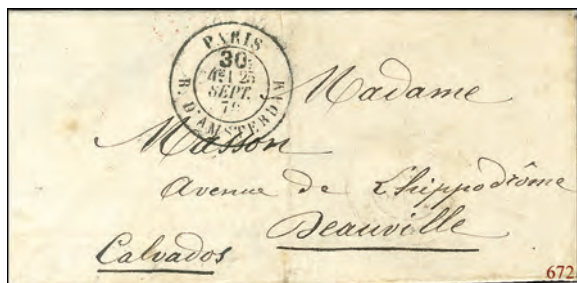 PARIS
30
25
SEPT.
R. D'AMSTERDAM
Madame
Masson
Avenue de L'hippodrôme
Deauville
Calvados
672